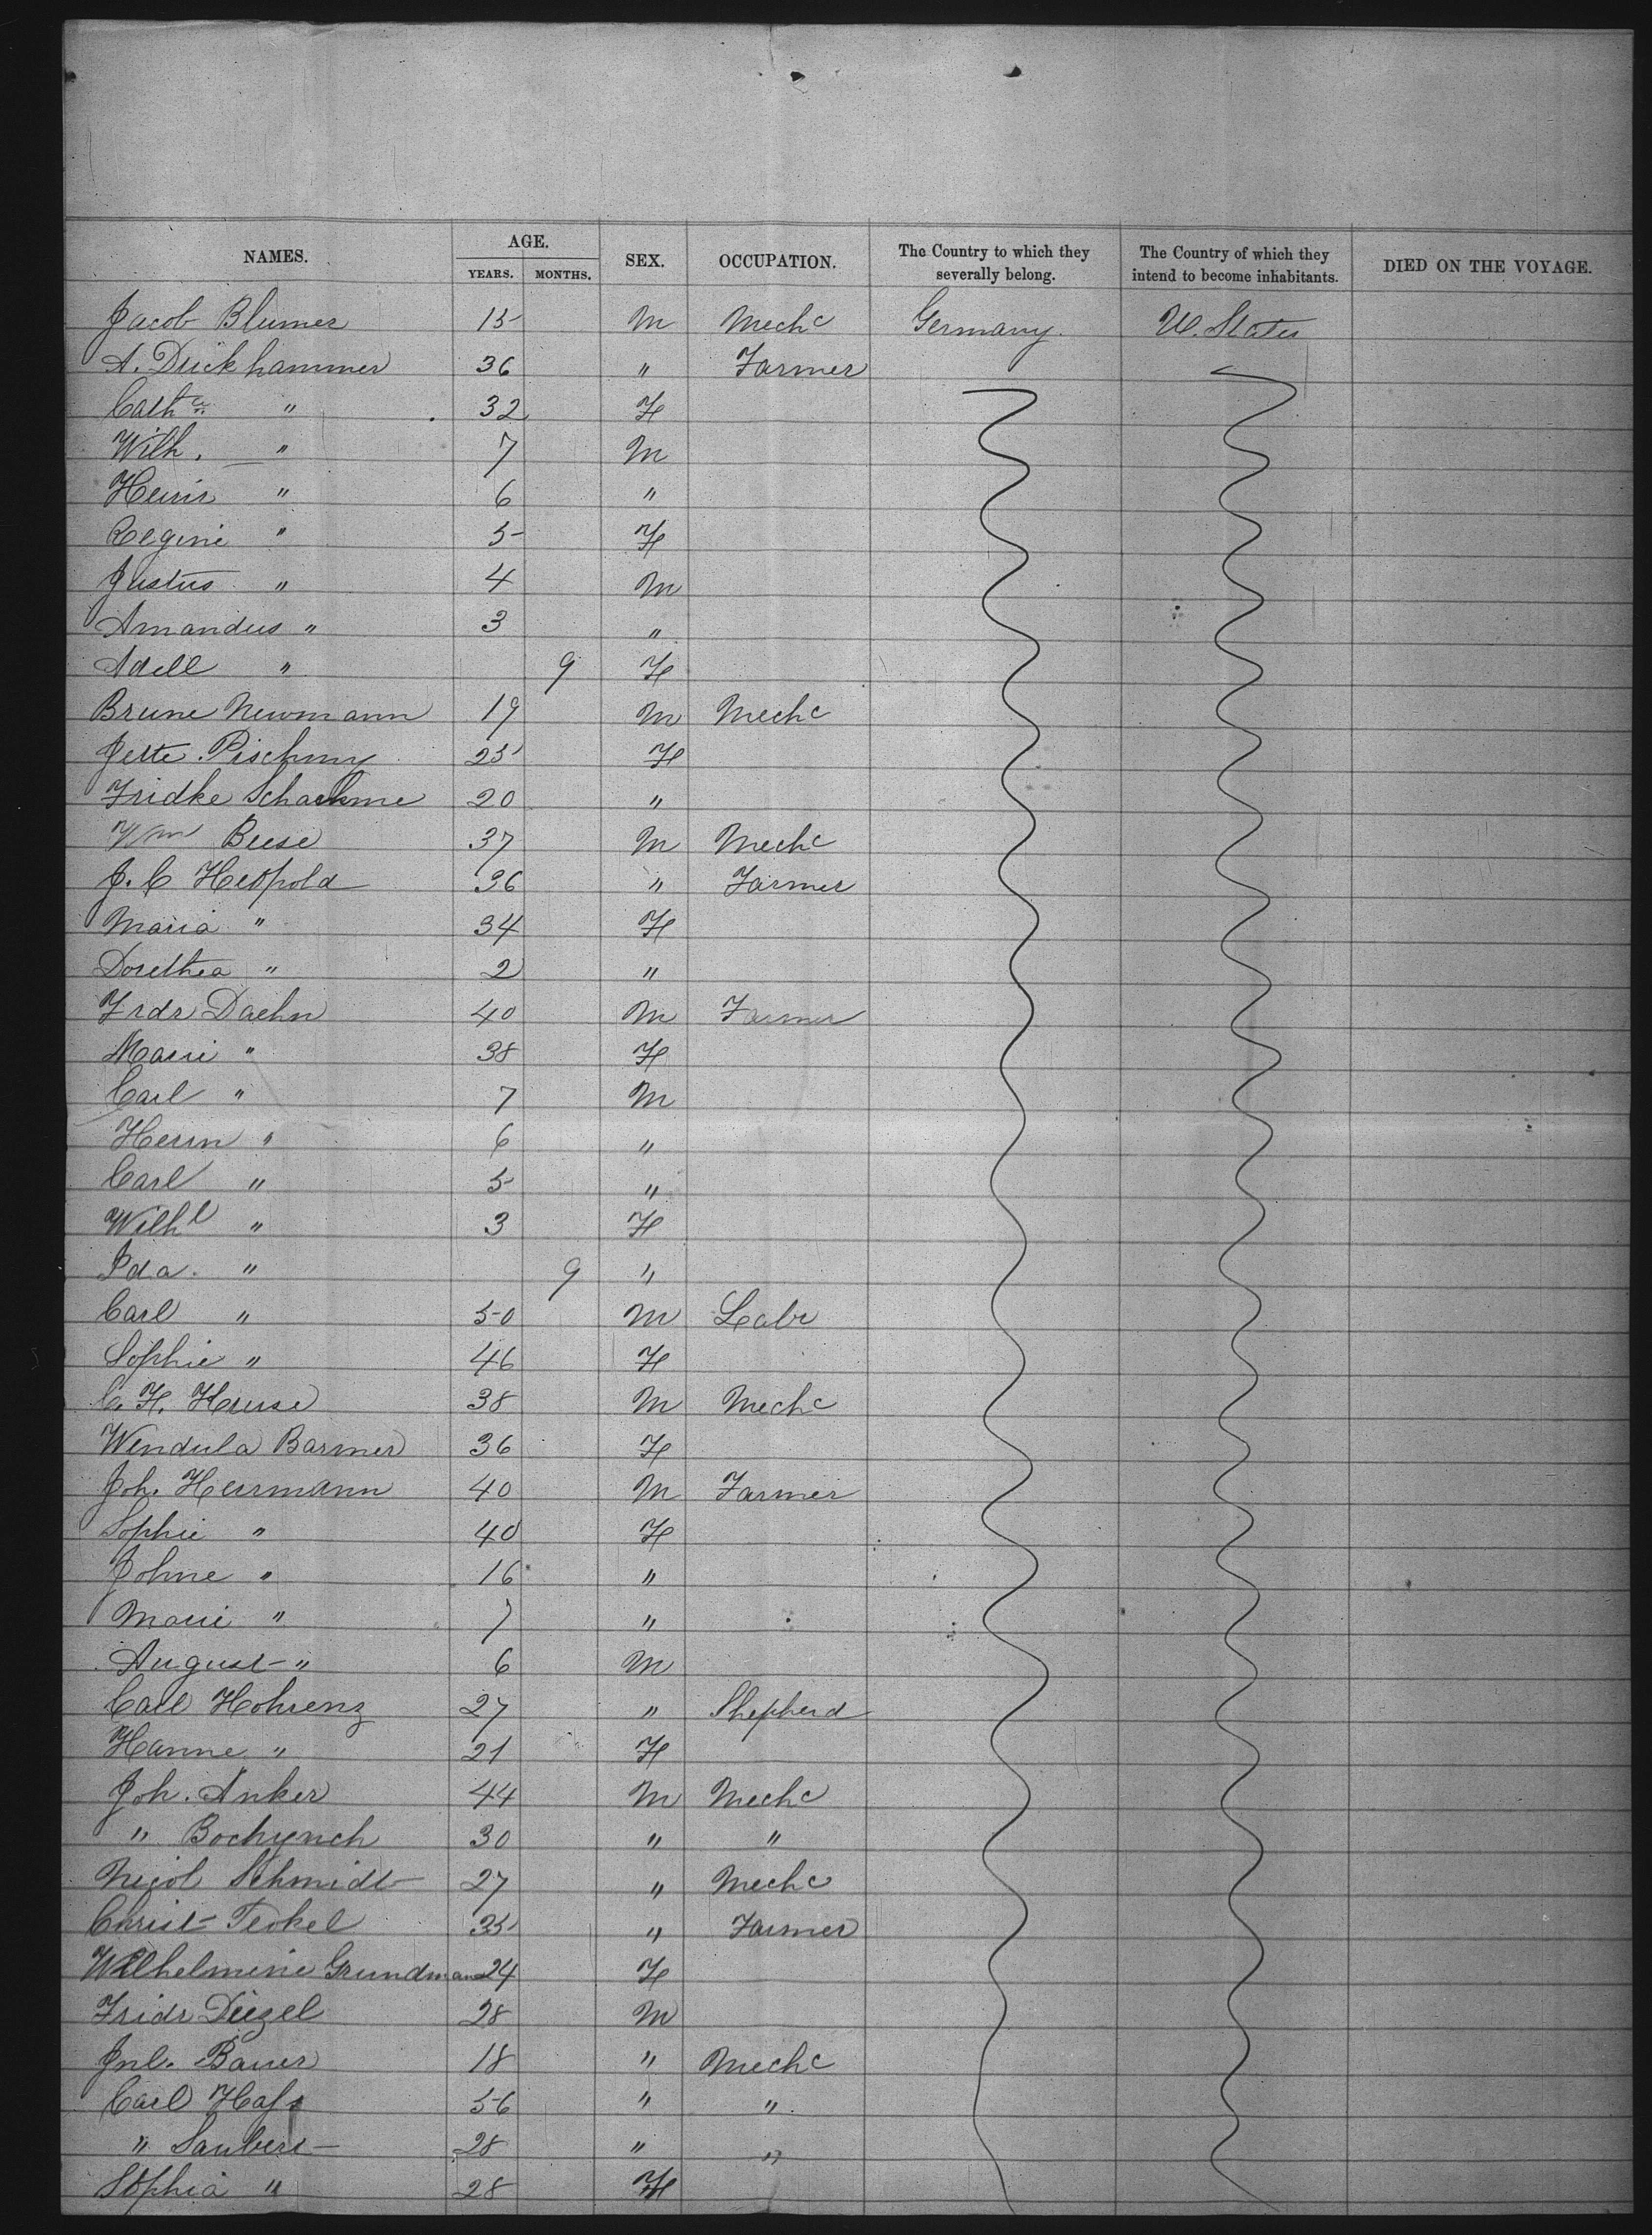 NAMES. AGE. SEX. OCCUPATION. The Country to which they severally belong. The Country of which they intend to become inhabitants. DIED ON THE VOYAGE.
YEARS. MONTHS.
Jacob Blumer 15 M Mechc Germany. U. States
A. Dückhammer 36 " Farmer
Cath " 32 F
Wilh. " 7 M
Heinr " 6 "
Regine " 5 F
Justus " 4 M
Amandus " 3 "
Adell " 9 F
Brune Newmann 19 M Mechc
Jette Pischny 25 F
Fridke 20 "
Wm Buse 37 M Mechc
J. C Hespold 36 " Farmer
Maria " 34 F
Dorethea " 2 "
Frdr Daehn 40 M Farmer
Marie " 38 F
Carl " 7 M
Herm " 6 "
Carl " 5 "
Wilhl " 3 F
Ida. " 9 "
Carl " 50 M Labr
Sophie " 46 F
C. H. Kruse 38 M Mechc
Wendula Barmer 36 F
Joh. Herrmann 40 M Farmer
Sophie " 40 F
Johne " 16 "
Marie " 7 "
August " 6 M
Carl Hohrenz 27 " Shepherd
Hanne " 21 F
Joh. Anker 44 M Mechc
" Bochynch 30 " "
Nicol Schmidt 27 " Mechc
Christ Teokel 35 " Farmer
Wilhelmine Grundmann 24 F
Fridr Diezel 28 M
Jul. Bauer 18 " Mechc
Carl Hass 56 " "
" Saubert 28 " "
Sophia " 28 F